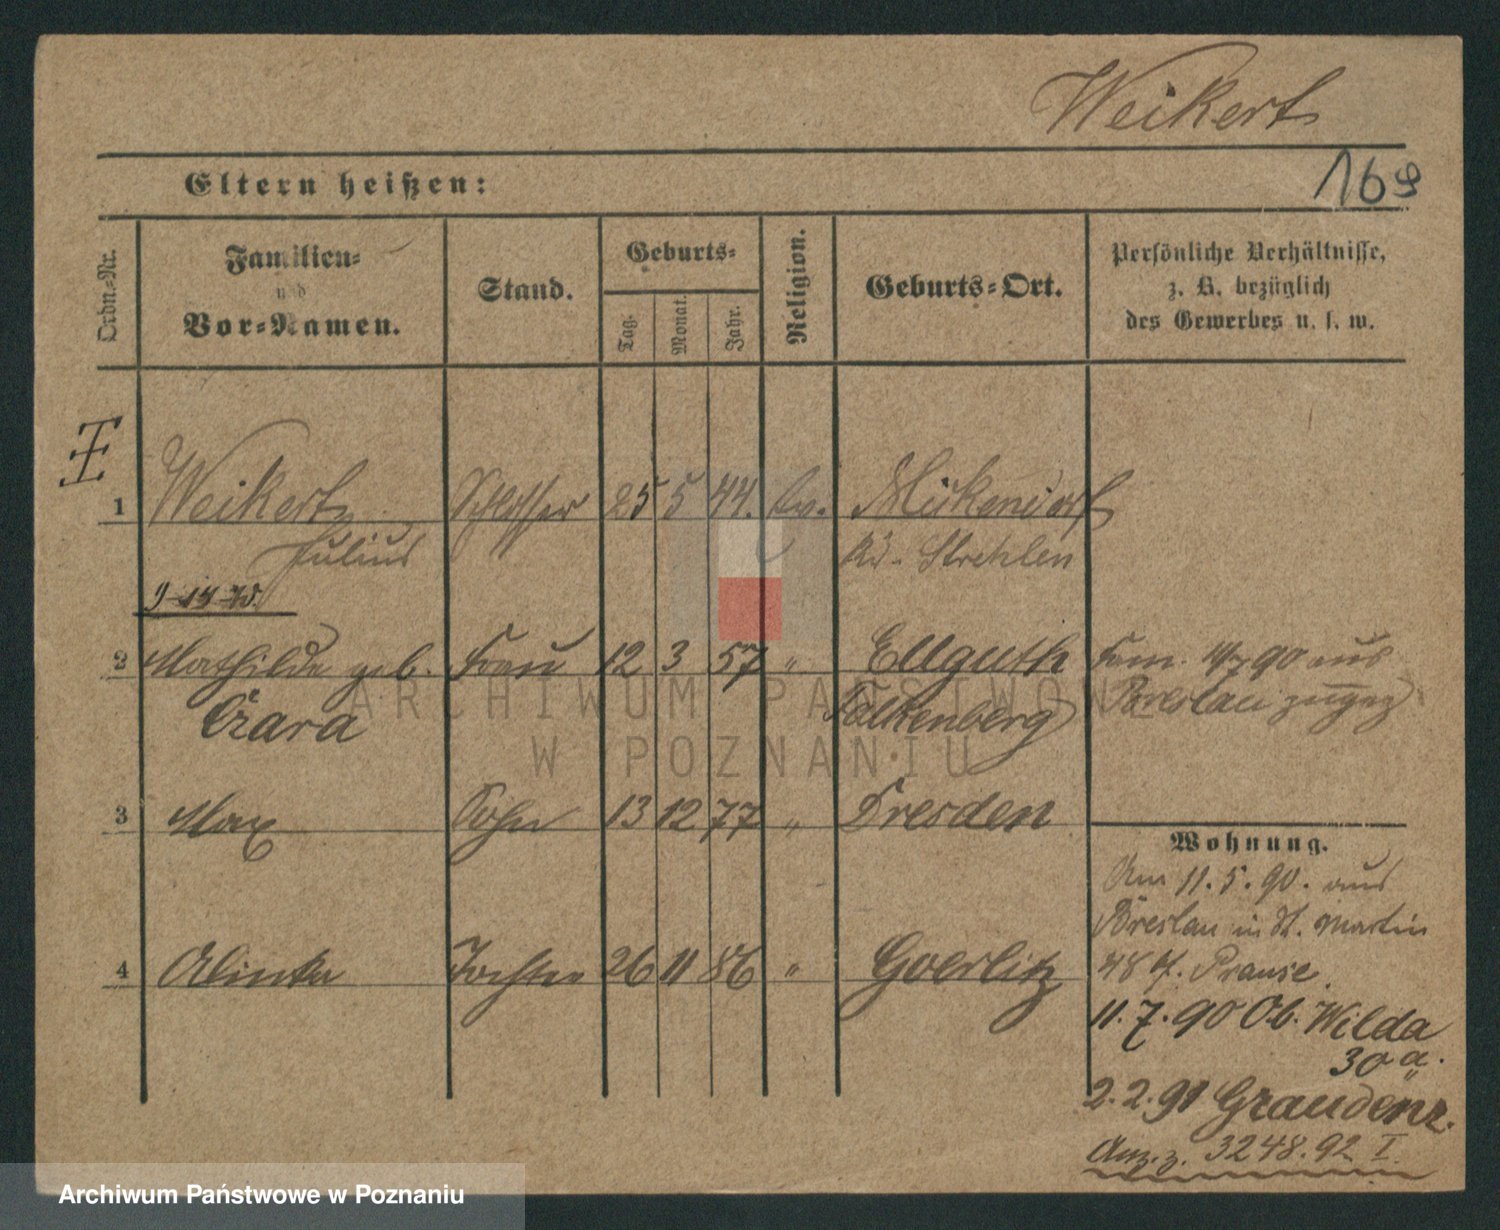 Weikert
169
Eltern heißen:
Ordn.-Nr.
Familien-
und
Vor-Namen.
Stand.
Geburts-
Tag.
Monat.
Jahr.
Religion.
Geburts-Ort.
Persönliche Verhältnisse,
z. B. bezüglich
des Gewerbes u. s. w.
1 Weikert Schlosser 25 5 44. Ev. Mükendorf
Julius Kr. Strehlen
2 Mathilde geb. Frau 12 3 57 " Ellguth Fam. 11/7 90 aus
Czara Falkenberg Breslau zugez
3 Max Sohn 13 12 77 " Dresden
Wohnung.
Am 11. 5. 90. aus
Breslau in St. Martin
4 Alinka Tochter 26 11 86 " Goerlitz 48 Prause.
11. 7. 90 Ob. Wilda
30 a.
2. 2. 91 Graudenz.
3248. 92 I.
ARCHIWUM PAŃSTWOWE
W POZNANIU
Archiwum Państwowe w Poznaniu